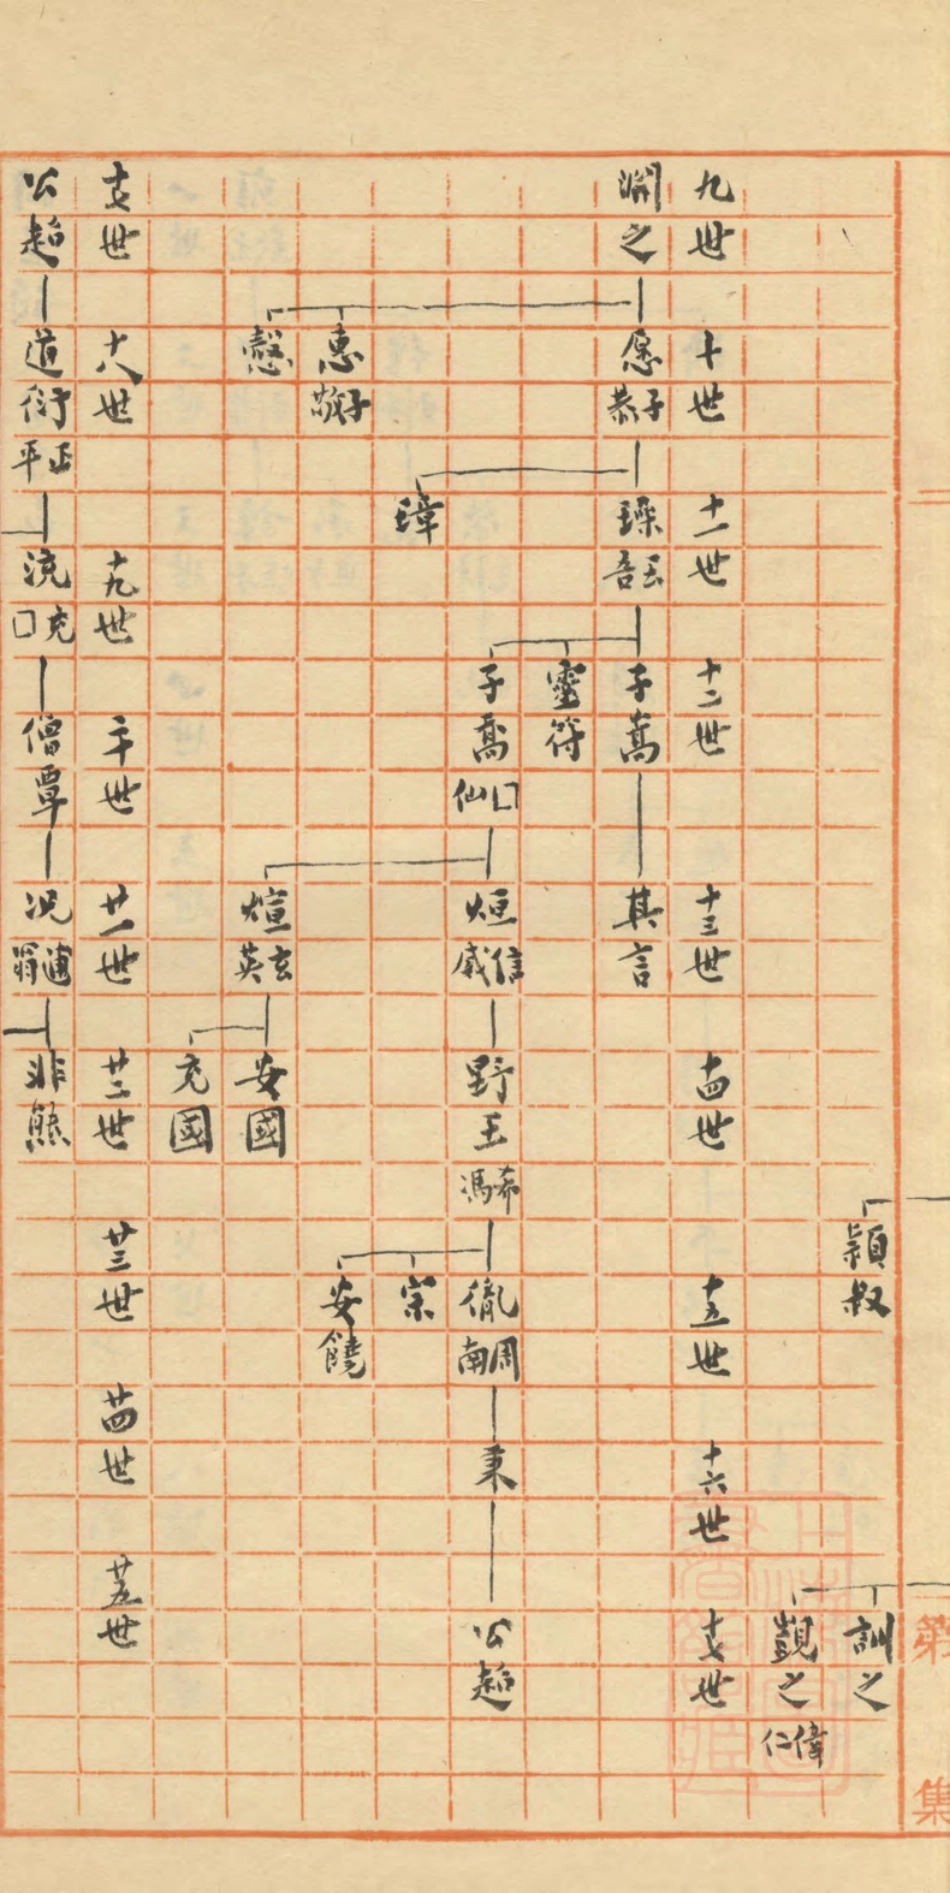 穎叔
訓之
觀之 偉仁
九世
十世
十一世
十二世
十三世
十四世
十五世
十六世
十七世
淵之
愿 子恭
璪
子嵩
其言
靈符
子喬 □仙
烜 信威
野王 希馮
胤 周南
秉
公超
璋
宗
惠 子敬
安饒
愨
煊 玄英
安國
充國
十七世
十八世
十九世
二十世
廿一世
廿二世
廿三世
廿四世
廿五世
公超
道衍 正平
流 充□
僧覃
況 逋翁
非熊
第
集